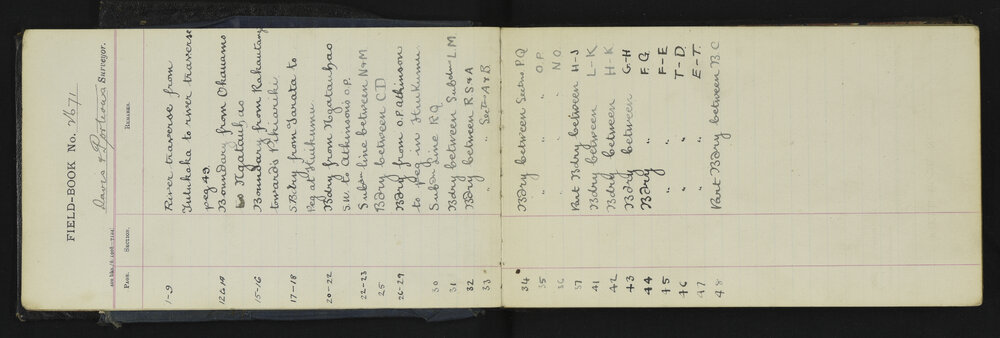 FIELD-BOOK No. 2671
Davis & Porteous Surveyor.
Page. Section. Remarks.
1-9 River traverse from
Tutukaka to river traverse
peg 49
Boundary from Okauamo
to Ngatauhao
15-16 Boundary from Rakautang
towards Pihiariki
17-18 S Bdry from Tarata to
Peg at Huikumu
20-22 Bdry from Ngatauhao
S.W to Atkinson's O.P.
22-23 Subdn line between N & M
25 Bdry between C D
26-29 Bdry from O.P. Atkinson
to peg in Huikumu
30 Subdn line R Q
31 Bdry between Subdn L M
32 Bdry between R S & A
33 " " Sectn A & B
34 Bdry between Sectns P Q
35 " " O. P.
36 " " N. O.
37 Part Bdry between H-J
41 Bdry between L-K
42 Bdry between H-K
43 Bdry between G-H
44 Bdry " F. G.
45 " " F-E
46 " " T-D
47 " " E-T.
48 Part Bdry between B C